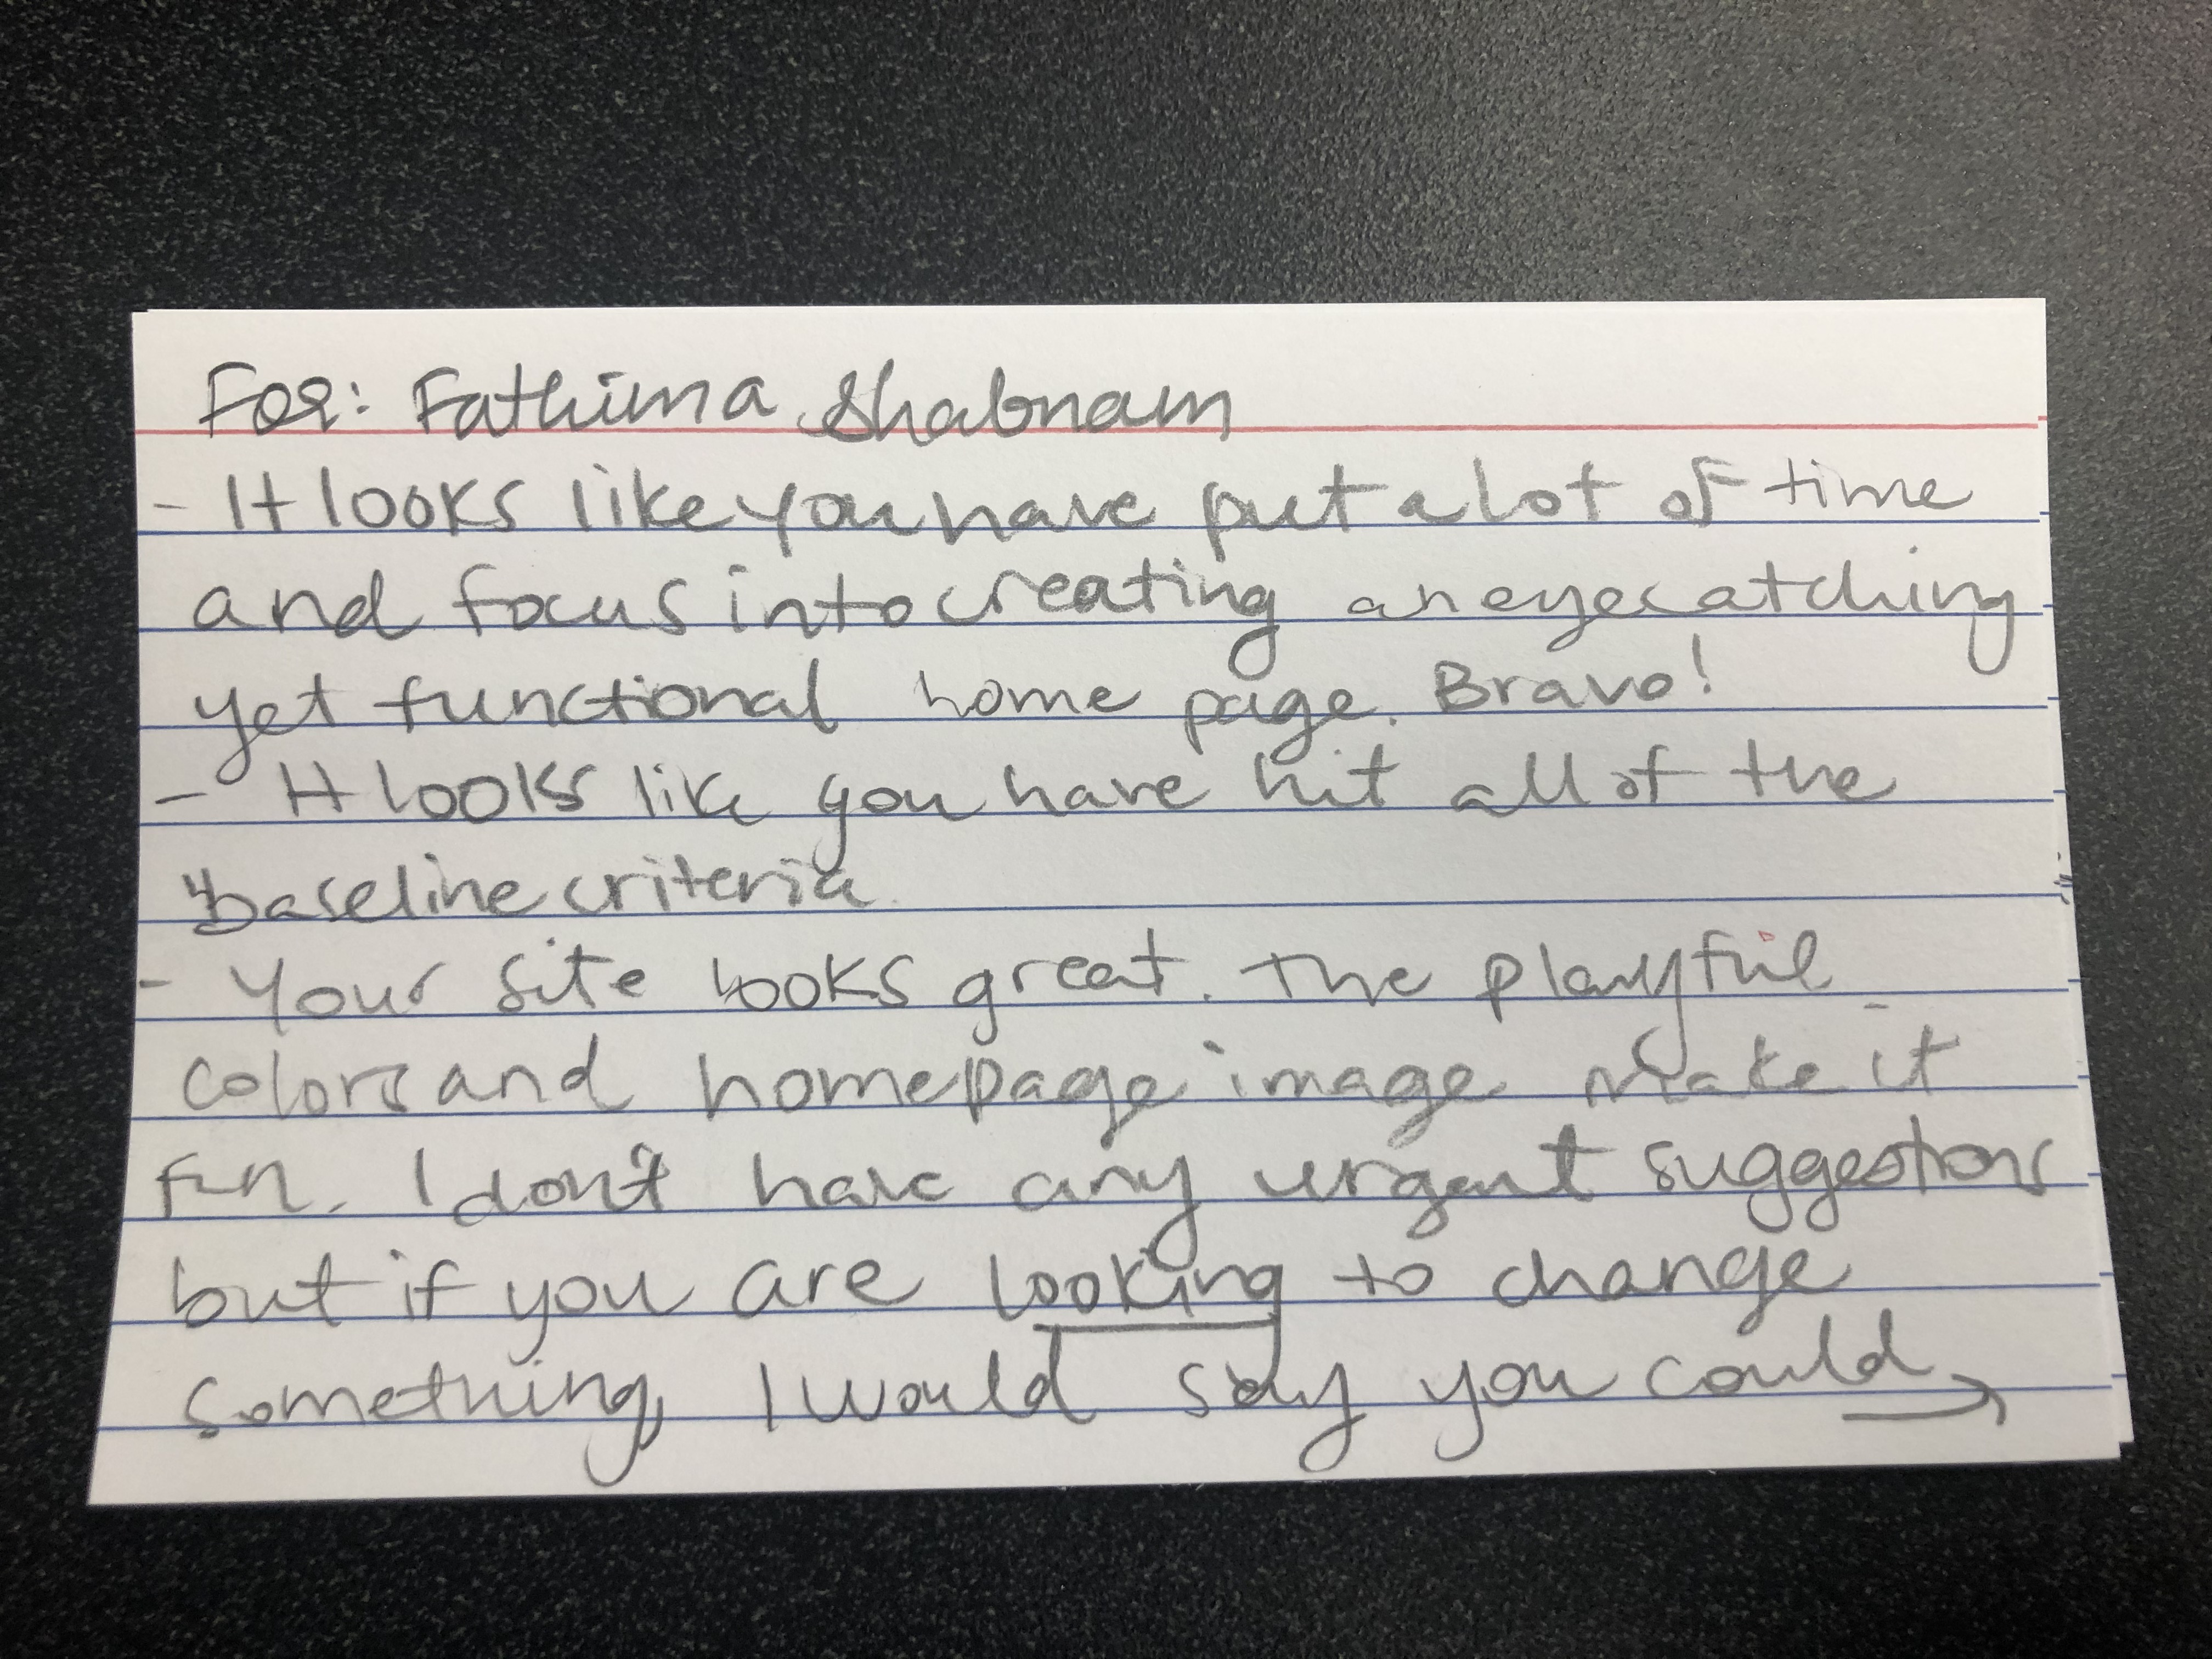 For: Fathima Shabnam
- It looks like you have put a lot of time
and focus into creating an eyecatching
yet functional home page. Bravo!
- It looks like you have hit all of the
"baseline criteria
- Your site looks great. The playful
colors and homepage image make it
fun. I don't have any urgent suggestions
but if you are looking to change
something, I would say you could →